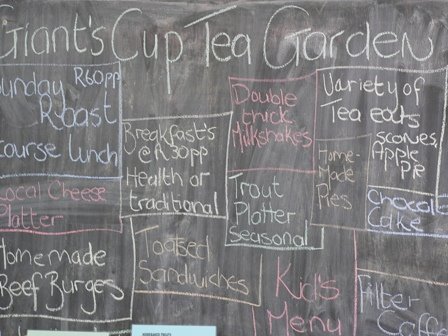 Giant's Cup Tea Garden
Sunday R60pp
Roast
course lunch
Local Cheese
Platter
Homemade
Beef Burges
Breakfast's
@ R30pp
Health or
traditional
Toatsed
Sandwiches
Double
thick
Milkshakes
Trout
Platter
Seasonal
Kid's
Menu
Variety of
Tea eats
scones,
Apple
Pie
Home-
Made
Pies
Chocolate
Cake
Filter